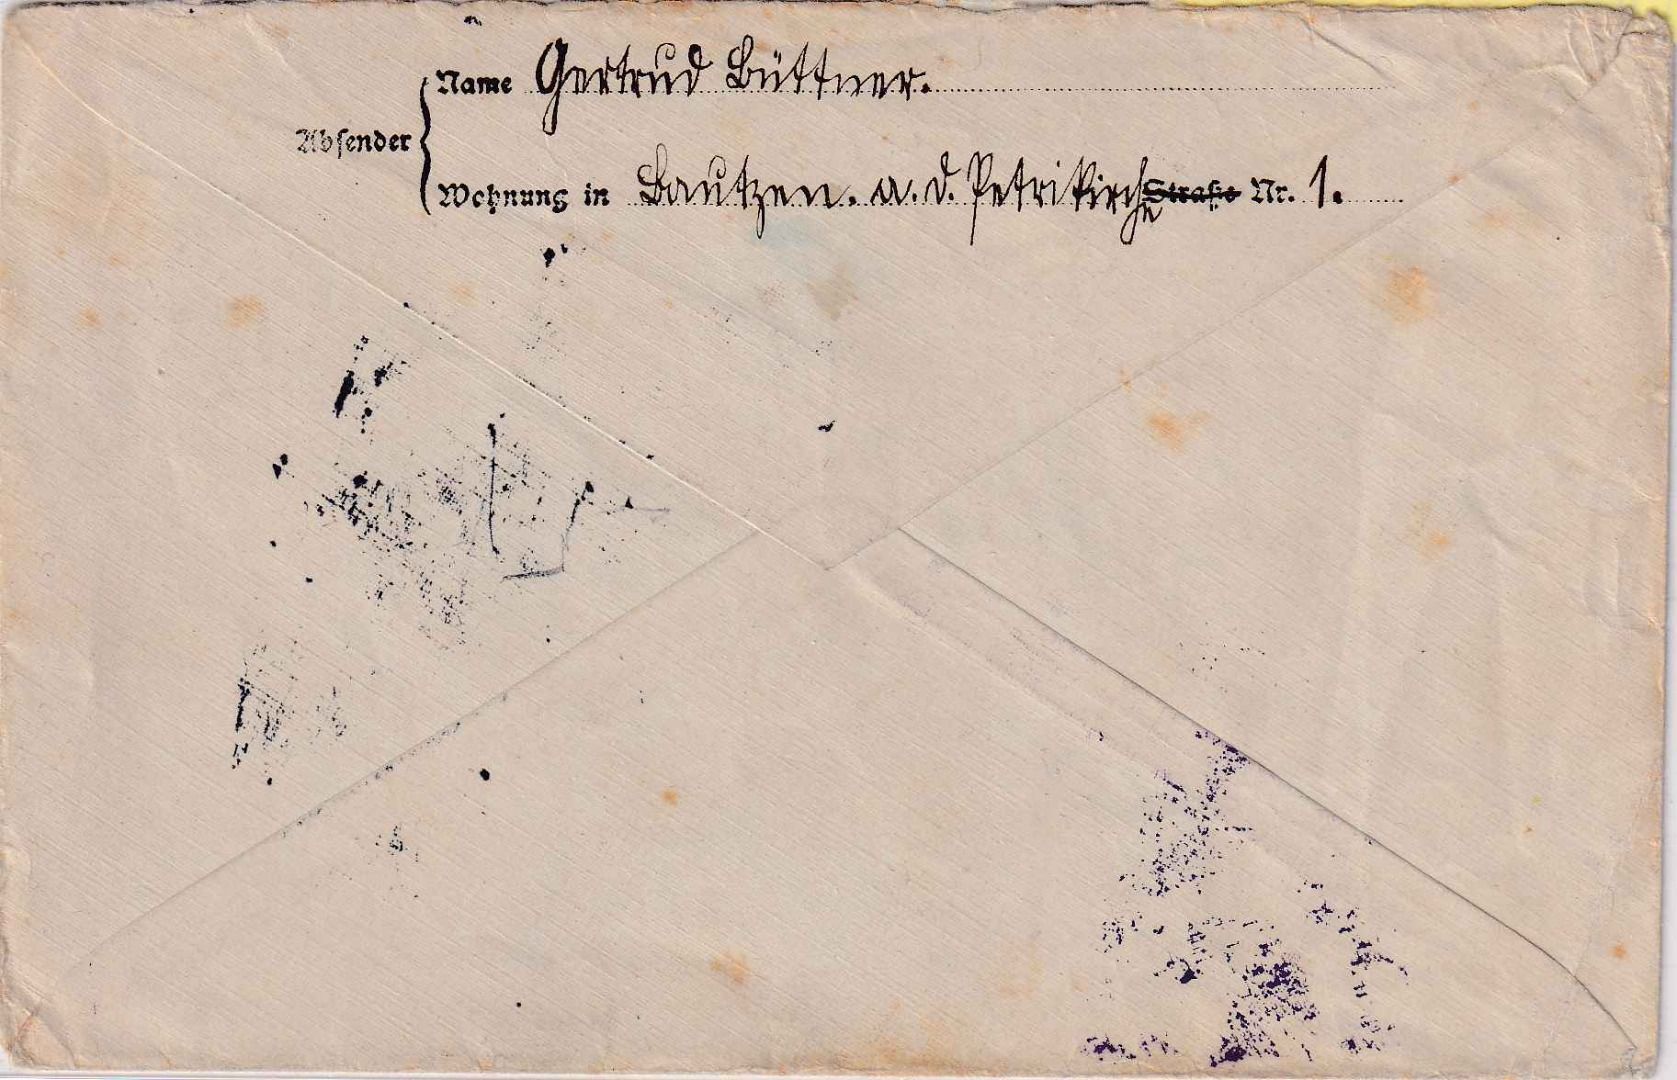 Name Gertrud Büttner.
Absender
Wohnung in Bautzen. a. d. Petrikirche Straße Nr. 1.